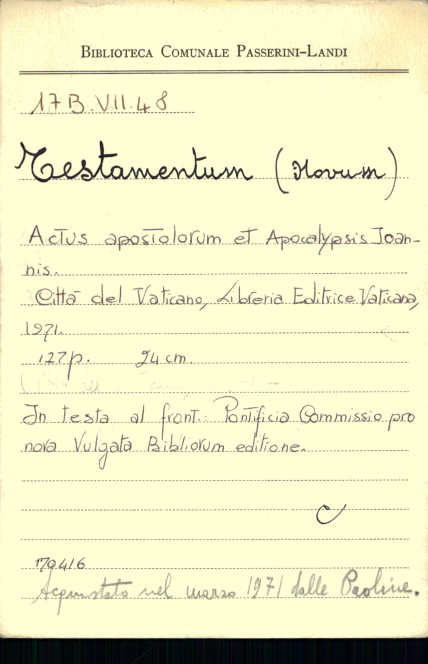 BIBLIOTECA COMUNALE PASSERINI-LANDI
17 B.VII.48
Testamentum (Novum)
Actus apostolorum et Apocalypsis Joan-
nis.
Città del Vaticano, Libreria Editrice Vaticana,
1971.
127p. 24 cm.
In testa al front.: Pontificia Commissio pro
nova Vulgata Bibliorum editione.
C
179416
Acquistato nel marzo 1971 dalle Paoline.